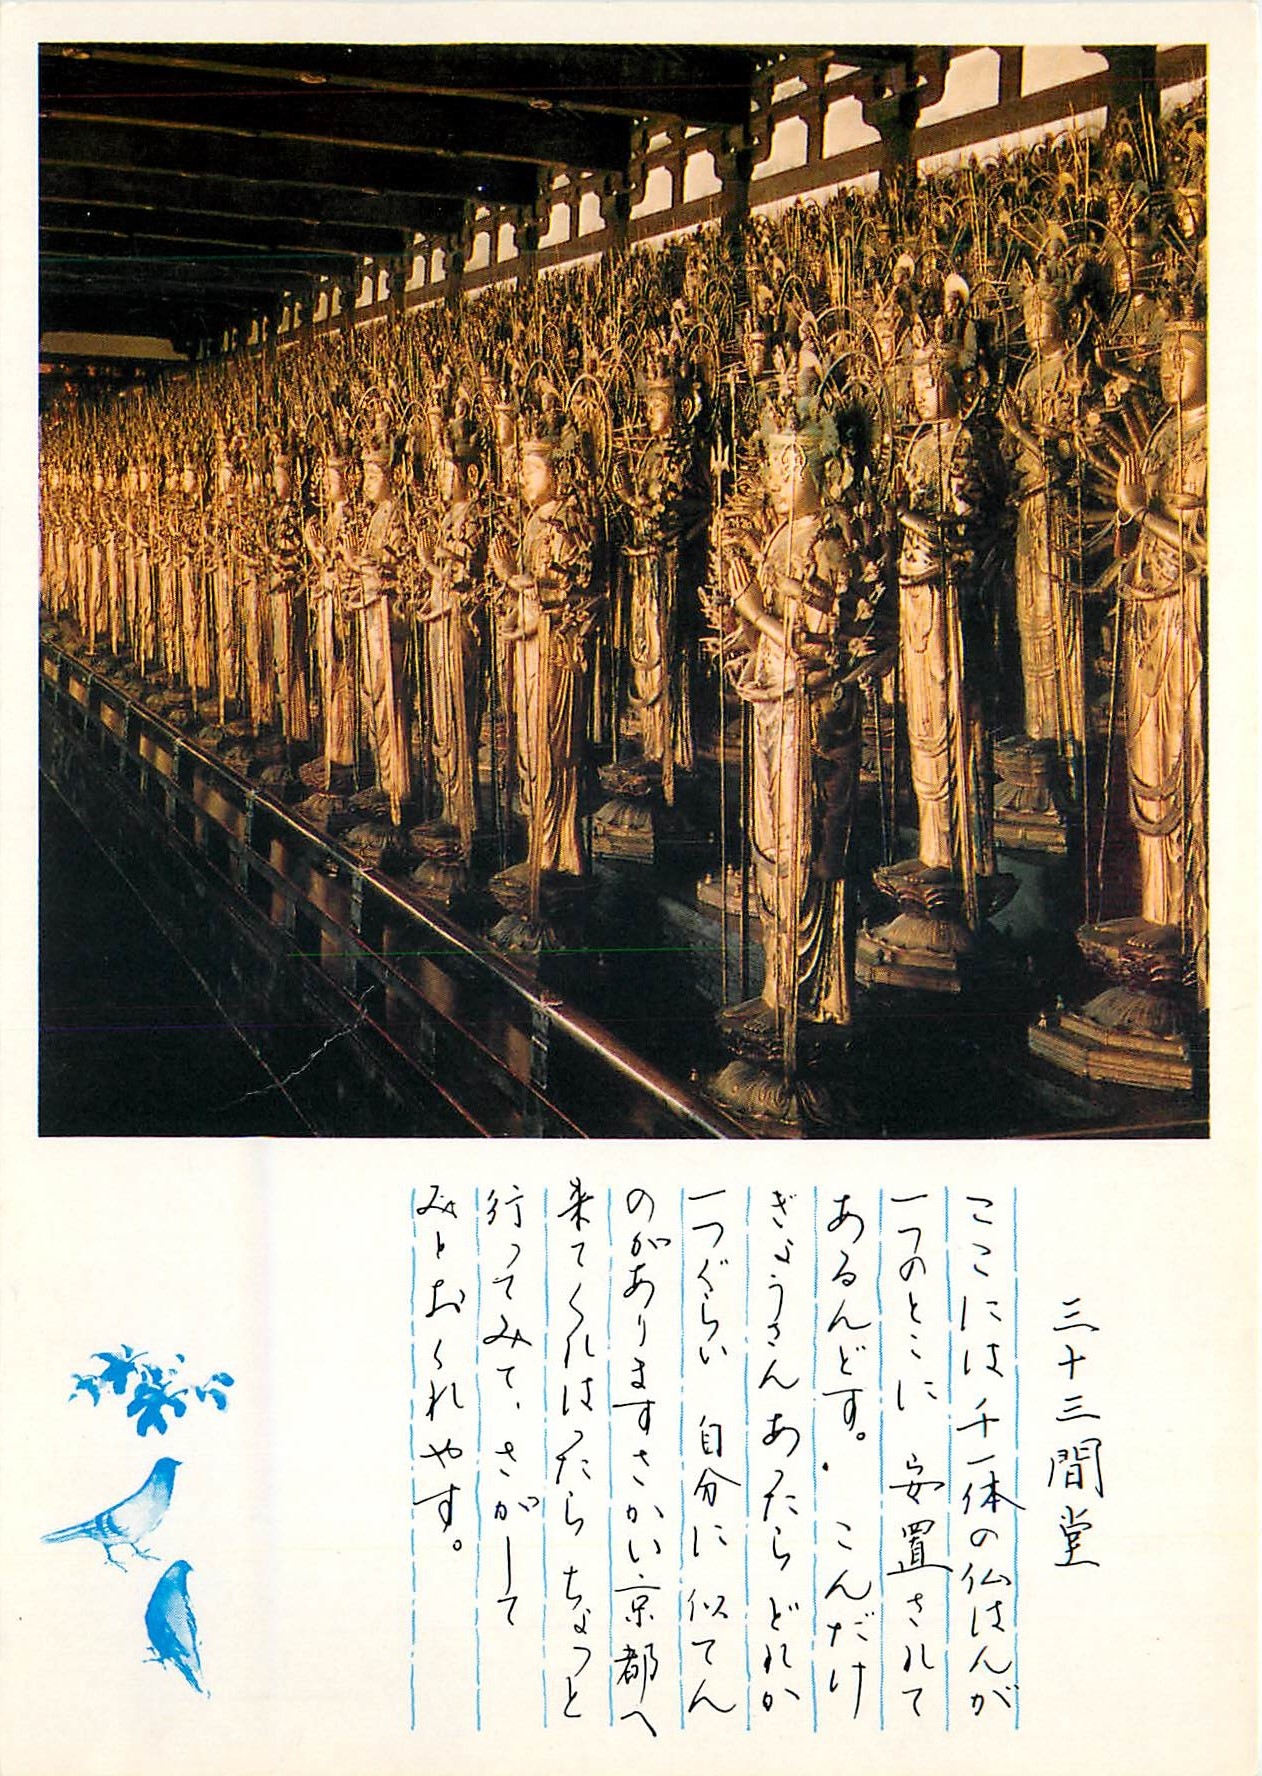 三十三間堂
ここには千一体の仏はんが
一つのとこに 安置されて
あるんどす。 こんだけ
ぎょうさんあったら どれか
一つぐらい 自分に似てん
のがありますさかい京都へ
来てくれはったら ちょっと
行ってみて、さがして
みとおくれやす。